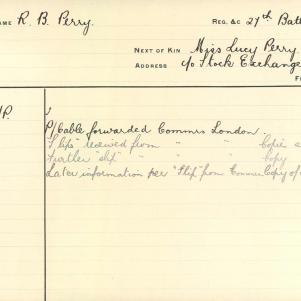 AME R. B. Perry. REG. &C 27th Batt
NEXT OF KIN Miss Lucy Perry
ADDRESS c/o Stock Exchange
P.
P/cable forwarded Commrs London.
"Slips" received from " " Copies
Further "slip" " " Copy
Later information per "Slip" from Commrs Copy of